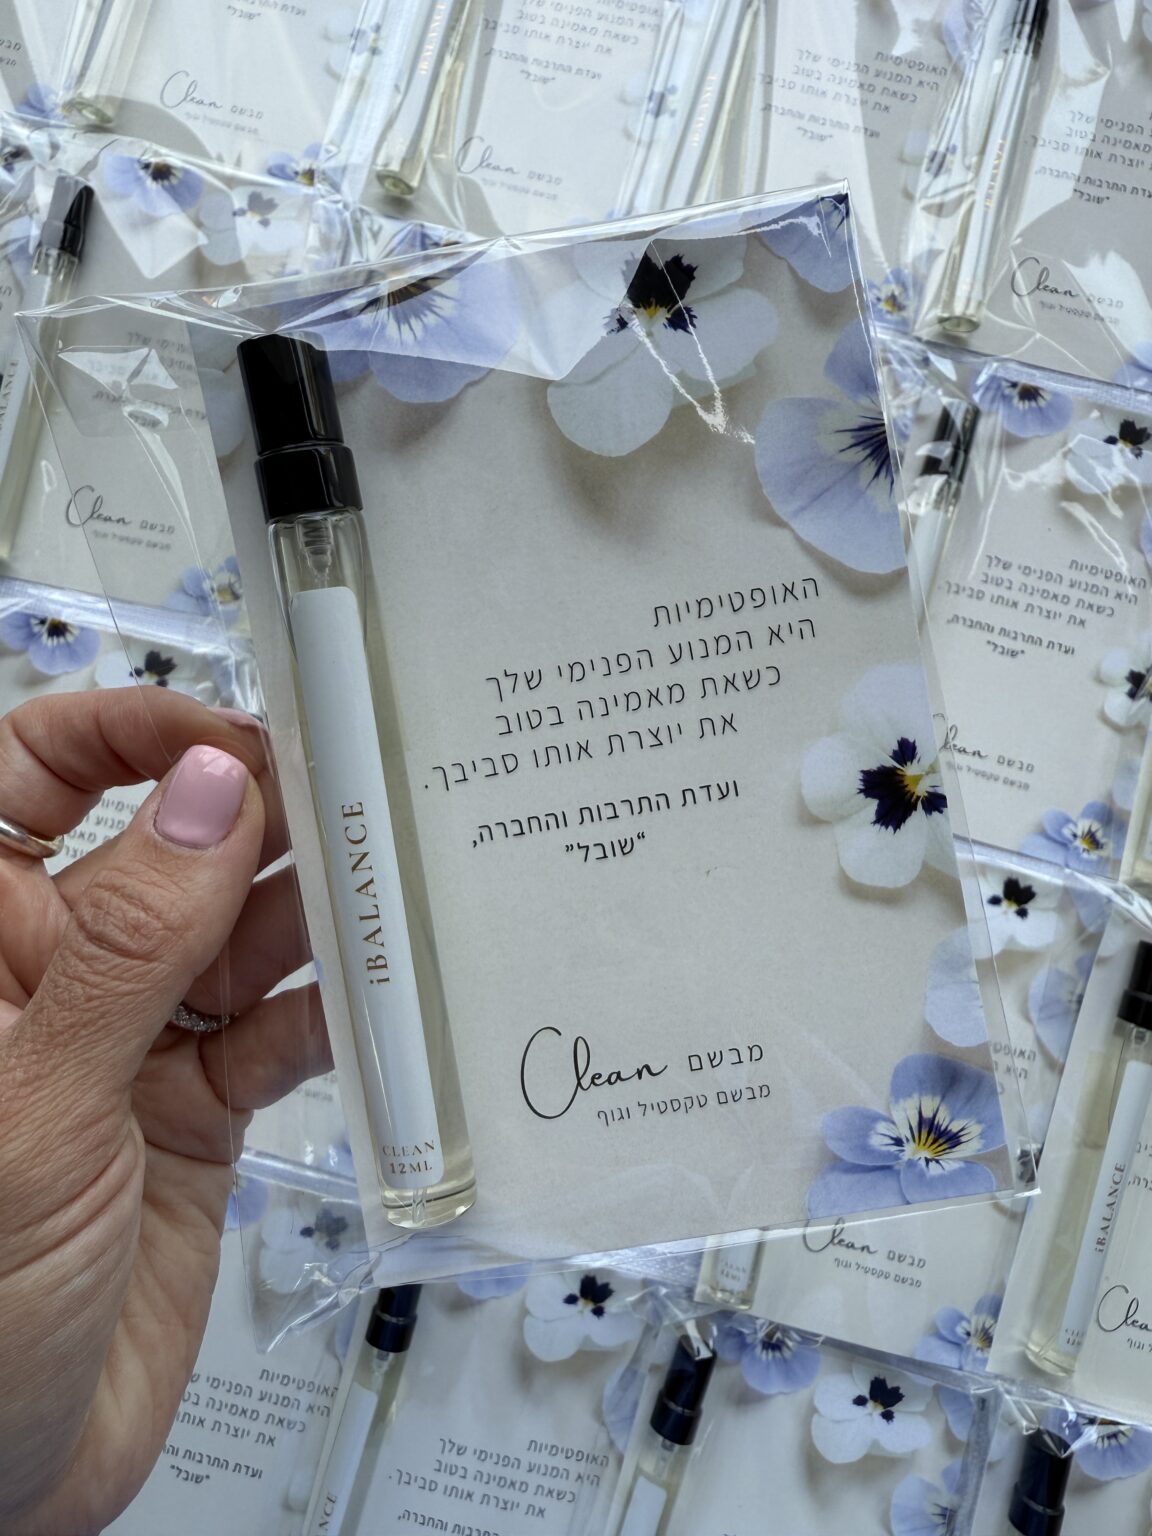 האופטימיות
היא המנוע הפנימי שלך
כשאת מאמינה בטוב
את יוצרת אותו סביבך.
ועדת התרבות והחברה,
"שובל"
iBALANCE
CLEAN
12ML
מבשם Clean
מבשם טקסטיל וגוף